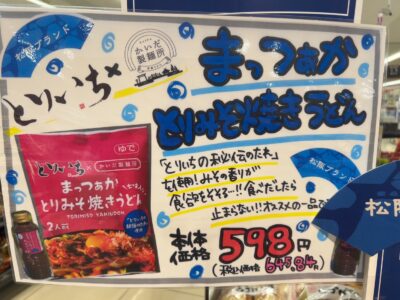 松阪ブランド
とりいち×
かいだ製麺所
まっつぁか
とりみそ焼きうどん
「とりいちの秘伝のたれ」
を使用!みその香りが
食欲をそそる…!!食べだしたら
止まらない!!オススメの一品です
松阪ブランド
本体
価格
598円
(税込価格 645.84円)
ゆで
とりいち×かいだ製麺所
まっつぁか
とりみそ焼きうどん
TORIMISO YAKIUDON
2人前
松阪